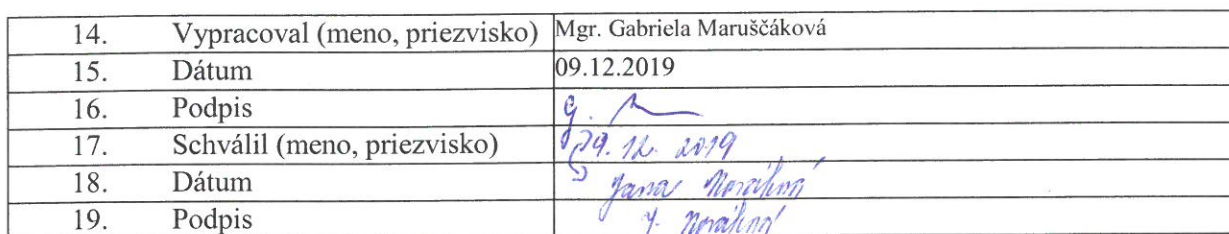 14. Vypracoval (meno, priezvisko) Mgr. Gabriela Maruščáková
15. Dátum 09.12.2019
16. Podpis
17. Schválil (meno, priezvisko) 12. 2019
18. Dátum Jana
19. Podpis